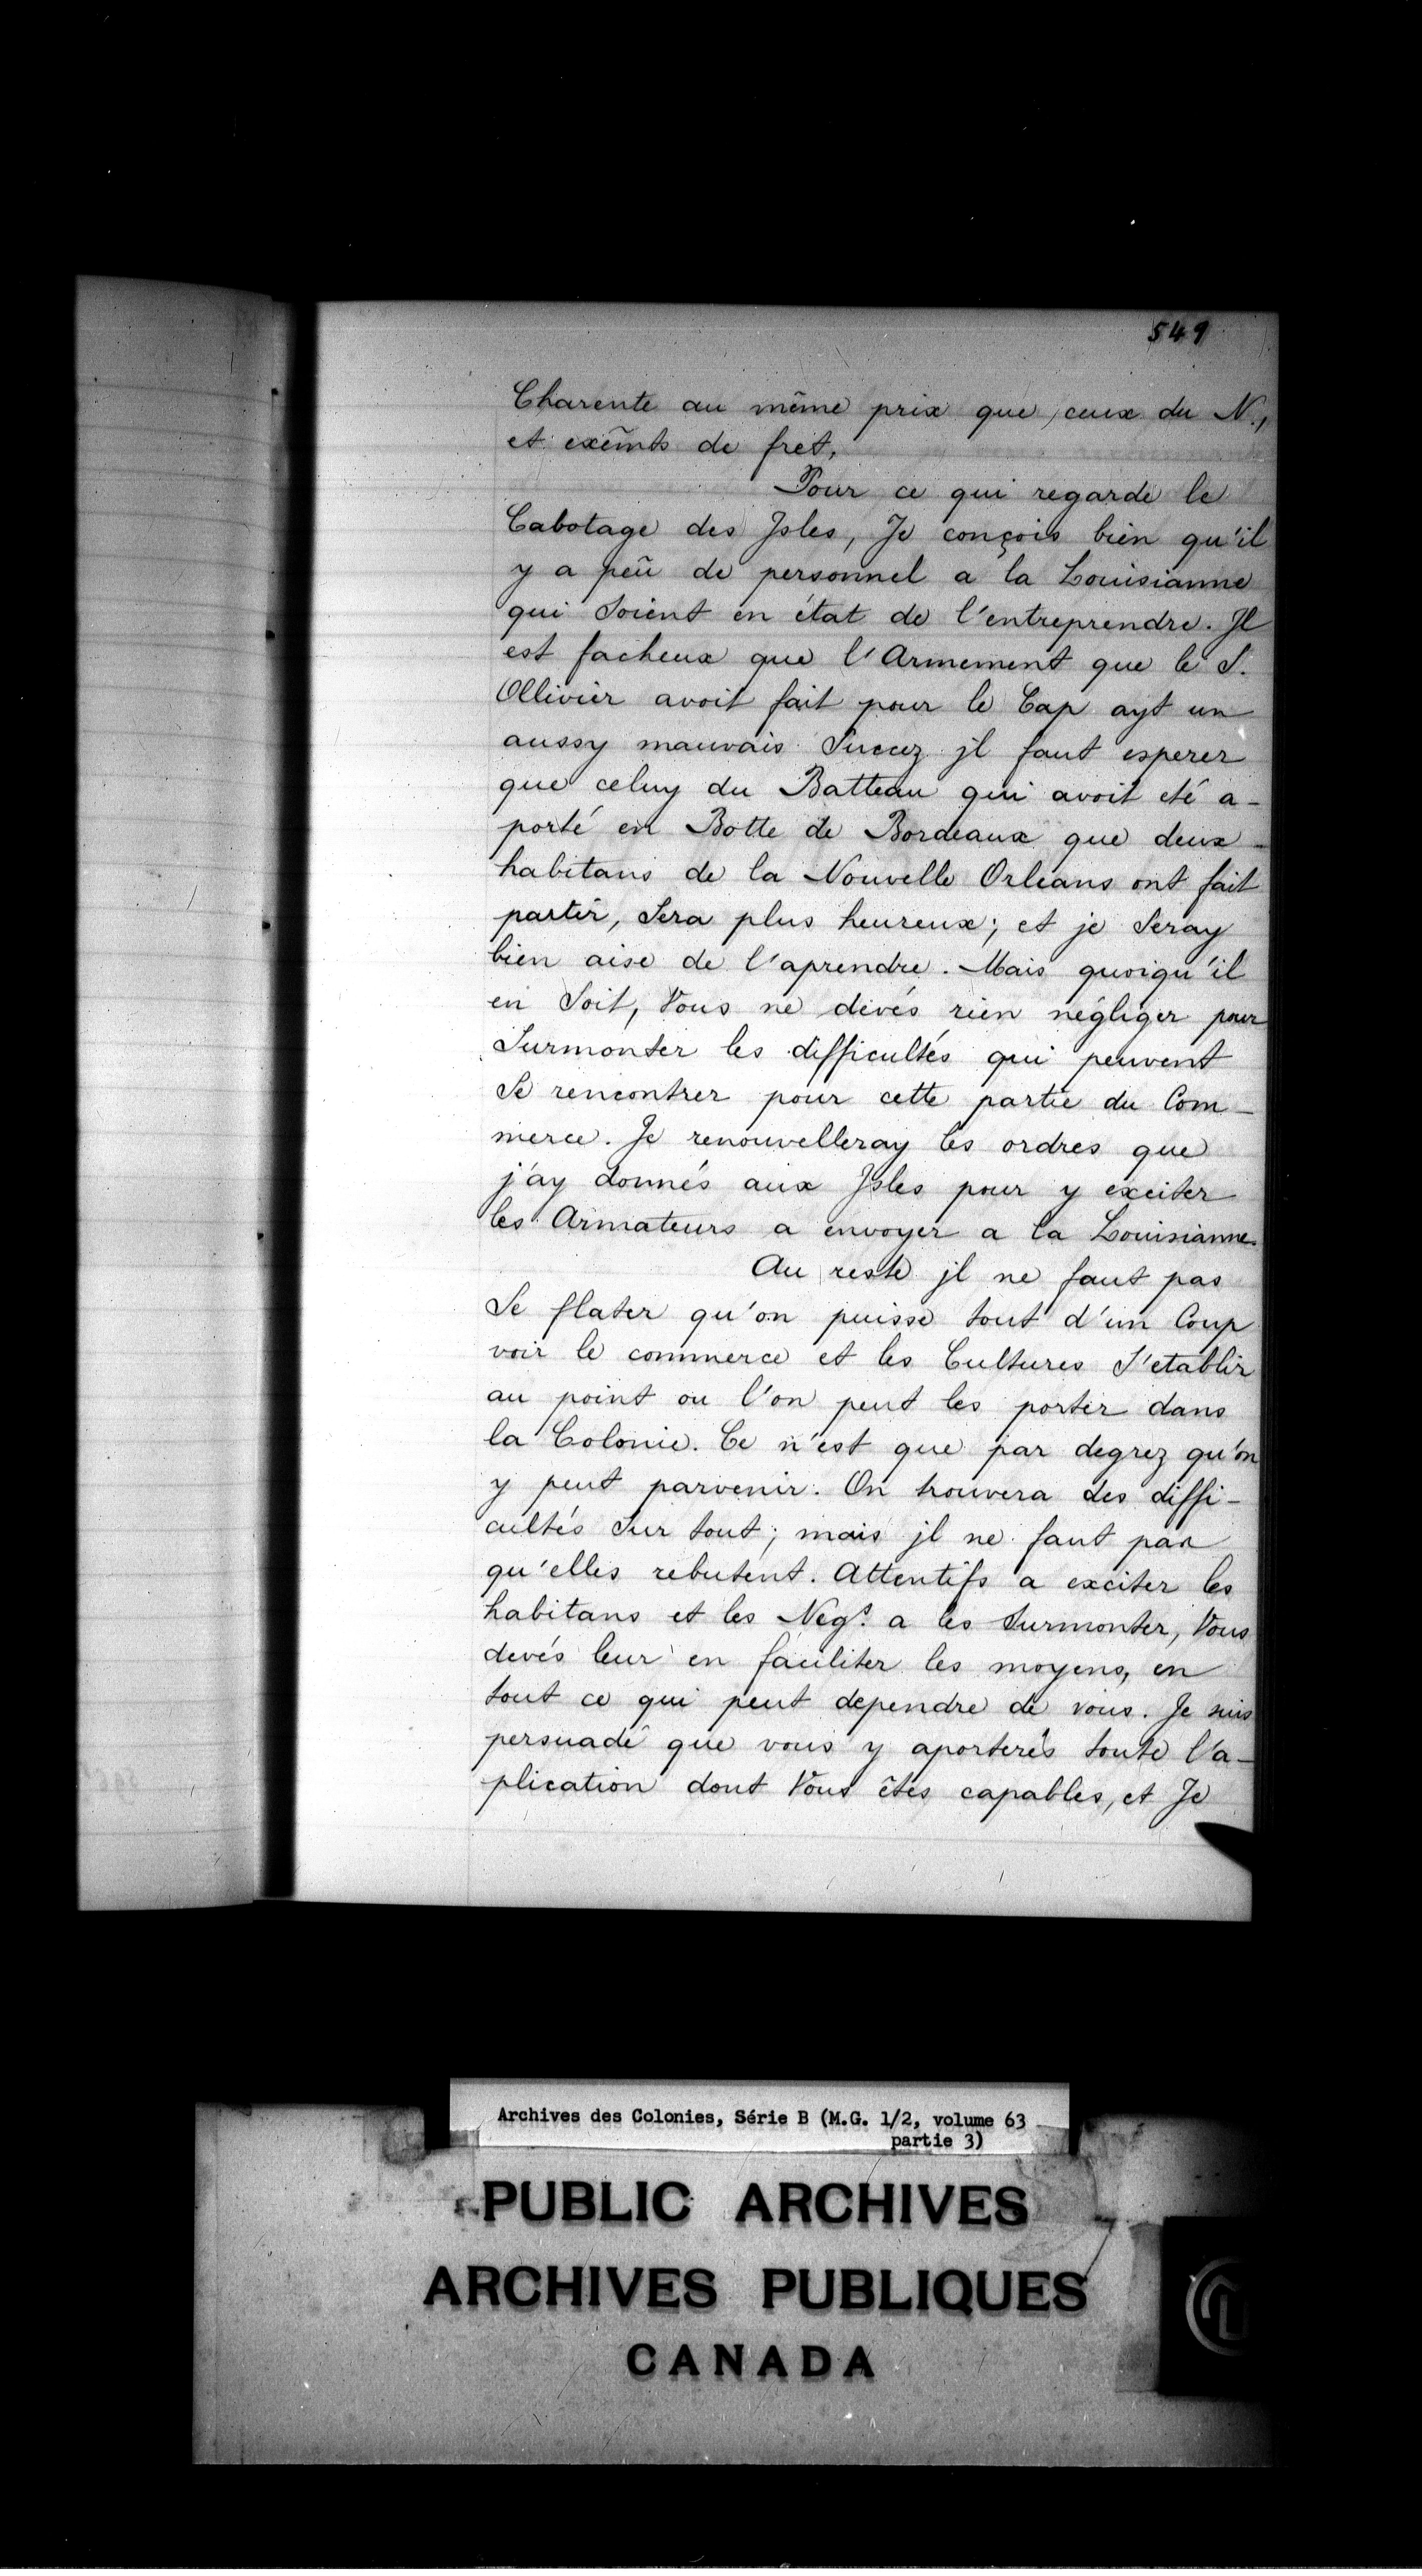 549
Charente au même prix que ceux du N.,
et exémts de fret.
Pour ce qui regarde le
Cabotage des Isles, Je conçois bien qu'il
y a peû de personnel a la Louisianne
qui soient en état de l'entreprendre. Il
est facheux que l'Armement que le S.
Ollivier avoit fait pour le Cap ayt un
aussy mauvais Succez jl faut esperer
que celuy du Batteau qui avoit eté a-
porté en Botte de Bordeaux que deux
habitans de la Nouvelle Orleans ont fait
partir, Sera plus heureux; et je Seray
bien aise de l'aprendre. Mais quoiqu'il
en Soit, Vous ne devés rien négliger pour
Surmonter les difficultés qui peuvent
Se rencontrer pour cette partie du Com-
merce. Je renouvelleray les ordres que
j'ay donnés aux Isles pour y exciter
les Armateurs a envoyer a la Louisianne.
Au reste jl ne faut pas
Se flater qu'on puisse tout d'un Coup
voir le commerce et les Cultures S'etablir
au point ou l'on peut les porter dans
la Colonie. Ce n'est que par degrez qu'on
y peut parvenir. On trouvera des diffi-
cultés Sur tout; mais jl ne faut pas
qu'elles rebutent. Attentifs a exciter les
habitans et les Negs. a les Surmonter, Vous
devés leur en faciliter les moyens, en
tout ce qui peut dependre de vous. Je suis
persuadé que vous y aporterés toute l'a-
plication dont Vous êtes capables, et Je
Archives des Colonies, Série B (M.G. 1/2, volume 63
partie 3)
PUBLIC ARCHIVES
ARCHIVES PUBLIQUES
CANADA